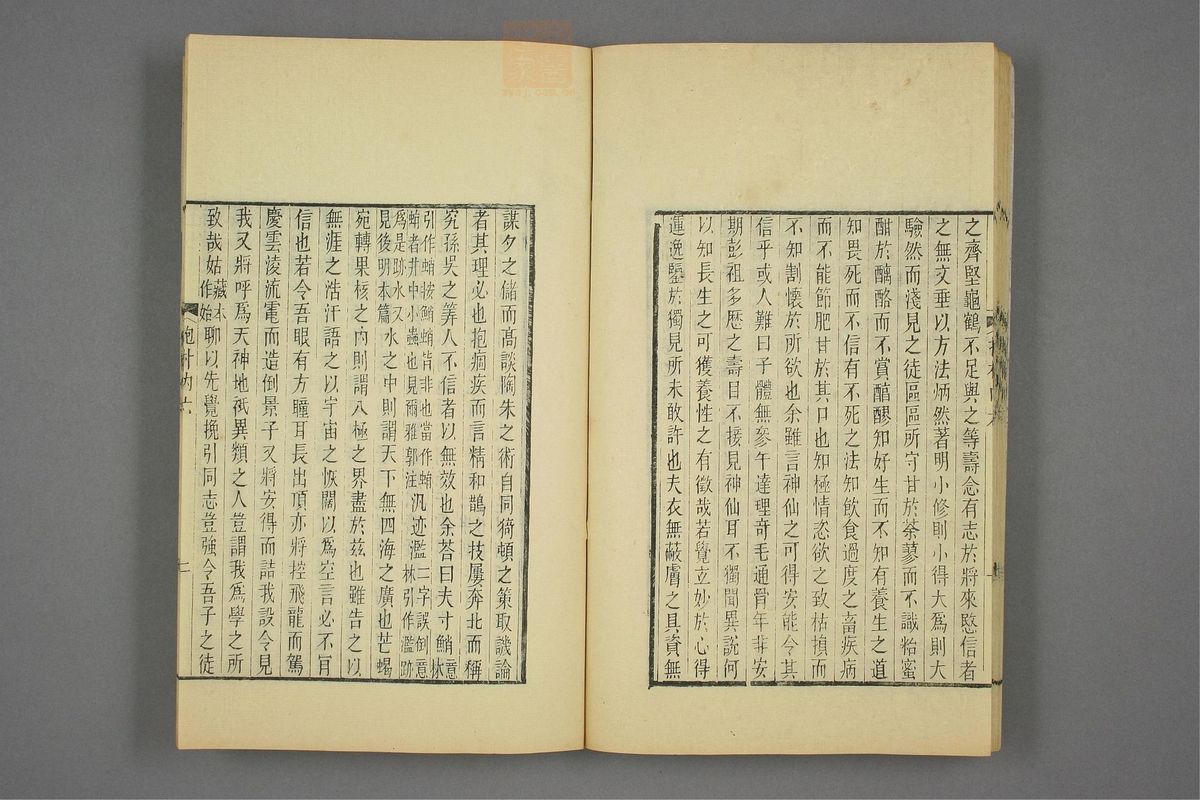 之齊堅龜鶴不足與之等壽念有志於將來愍信者
之無文垂以方法炳然著明小修則小得大爲則大
驗然而淺見之徒區區所守甘於荼蓼而不識飴蜜
酣於醨酪而不賞醇醪知好生而不知有養生之道
知畏死而不信有不死之法知飲食過度之畜疾病
而不能節肥甘於其口也知極情恣欲之致枯損而
不知割懷於所欲也余雖言神仙之可得安能令其
信乎或人難曰子體無參午達理奇毛通骨年非安
期彭祖多歷之壽目不接見神仙耳不獨聞異說何
以知長生之可獲養性之有徵哉若覺立妙於心得
運逸鑒於獨見所未敢許也夫衣無蔽膚之具資無
謀夕之儲而高談陶朱之術自同猗頓之策取譏論
者其理必也抱痼疾而言精和鵲之技屢奔北而稱
究孫吳之筭人不信者以無效也余荅曰夫寸鮹意林
引作蛸按鮹蛸皆非也當作蛕
蛕者井中小蟲也見爾雅郭注汎迹濫二字誤倒意林引作濫跡
爲是跡水又
見後明本篇水之中則謂天下無四海之廣也芒蝎
宛轉果核之內則謂八極之界盡於兹也雖告之以
無涯之浩汗語之以宇宙之恢闊以爲空言必不肎
信也若令吾眼有方瞳耳長出頂亦將控飛龍而駕
慶雲淩流電而造倒景子又將安得而詰我設令見
我又將呼爲天神地祇異類之人豈謂我爲學之所
致哉姑藏本作始聊以先覺挽引同志豈強令吾子之徒
抱朴內六
七